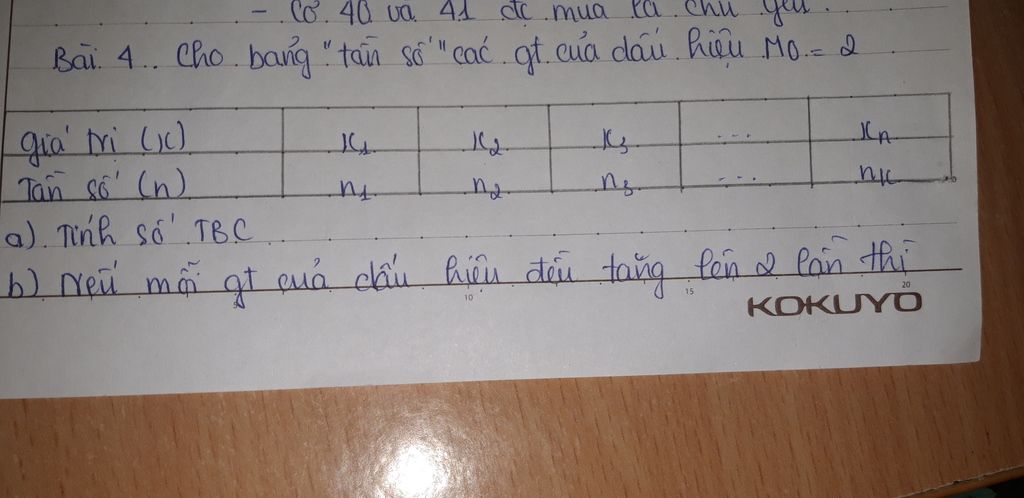 - Cỡ 40 và 41 đc mua là chủ yếu.
Bài 4.. Cho bảng "tần số" các gt của dấu hiệu M0 = 2
giá trị (x) x1 x2 x3 ... xn
Tần số (n) n1 n2 n3 ... nk
a) Tính số TBC
b) Nếu mỗi gt của dấu hiệu đều tăng lên 2 lần thì
10 15 20
KOKUYO